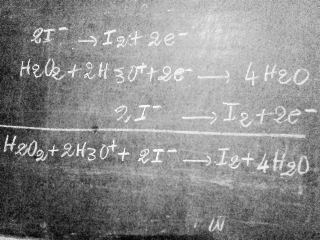 2I⁻ → I₂ + 2e⁻
H₂O₂ + 2H₃O⁺ + 2e⁻ → 4H₂O
2I⁻ → I₂ + 2e⁻
H₂O₂ + 2H₃O⁺ + 2I⁻ → I₂ + 4H₂O